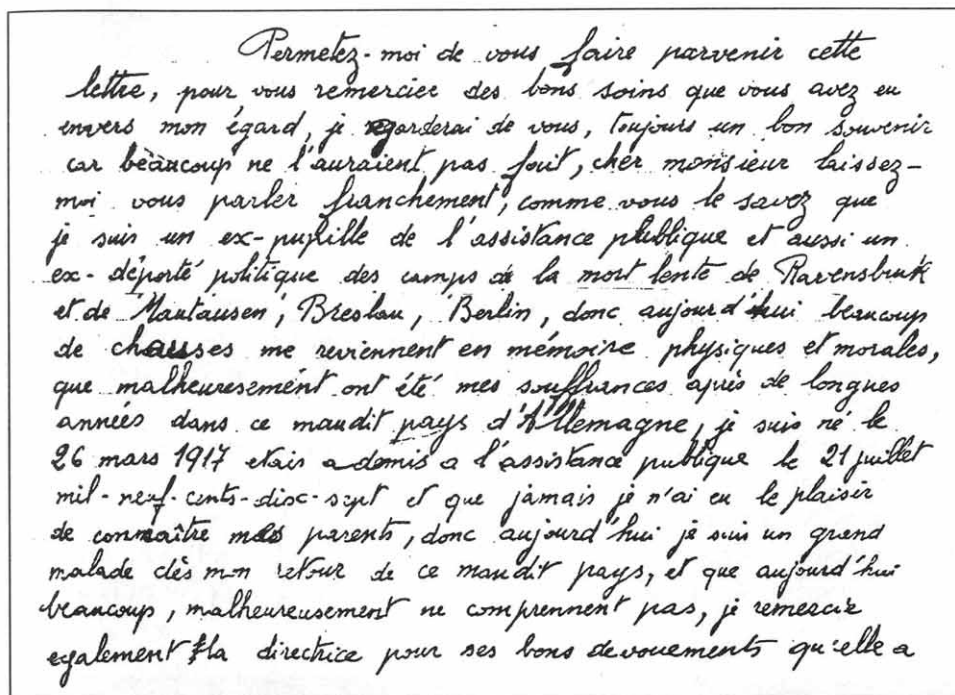 Permetez-moi de vous faire parvenir cette
lettre, pour vous remerciee des bons soins que vous avez eu
envers mon égard, je garderai de vous, toujours un bon souvenir
car beaucoup ne l'auraient pas fait, cher monsieur laissez-
moi vous parler franchement, comme vous le savez que
je suis un ex-pupille de l'assistance publique et aussi un
ex-déporté politique des camps de la mort lente de Ravensbruk
et de Mautausen, Breslau, Berlin, donc aujourd'hui beaucoup
de chausses me reviennent en mémoire physiques et morales,
que malheuresement ont été mes souffrances après de longues
années dans ce maudit pays d'Allemagne, je suis né le
26 mars 1917 etais admis a l'assistance publique le 21 juillet
mil-neuf-cents-disc-sept et que jamais je n'ai eu le plaisir
de connaître mes parents, donc aujourd'hui je suis un grand
malade dès mon retour de ce maudit pays, et que aujourd'hui
beaucoup, malheureusement ne comprennent pas, je remercie
egalement la directrice pour ses bons devouements qu'elle a